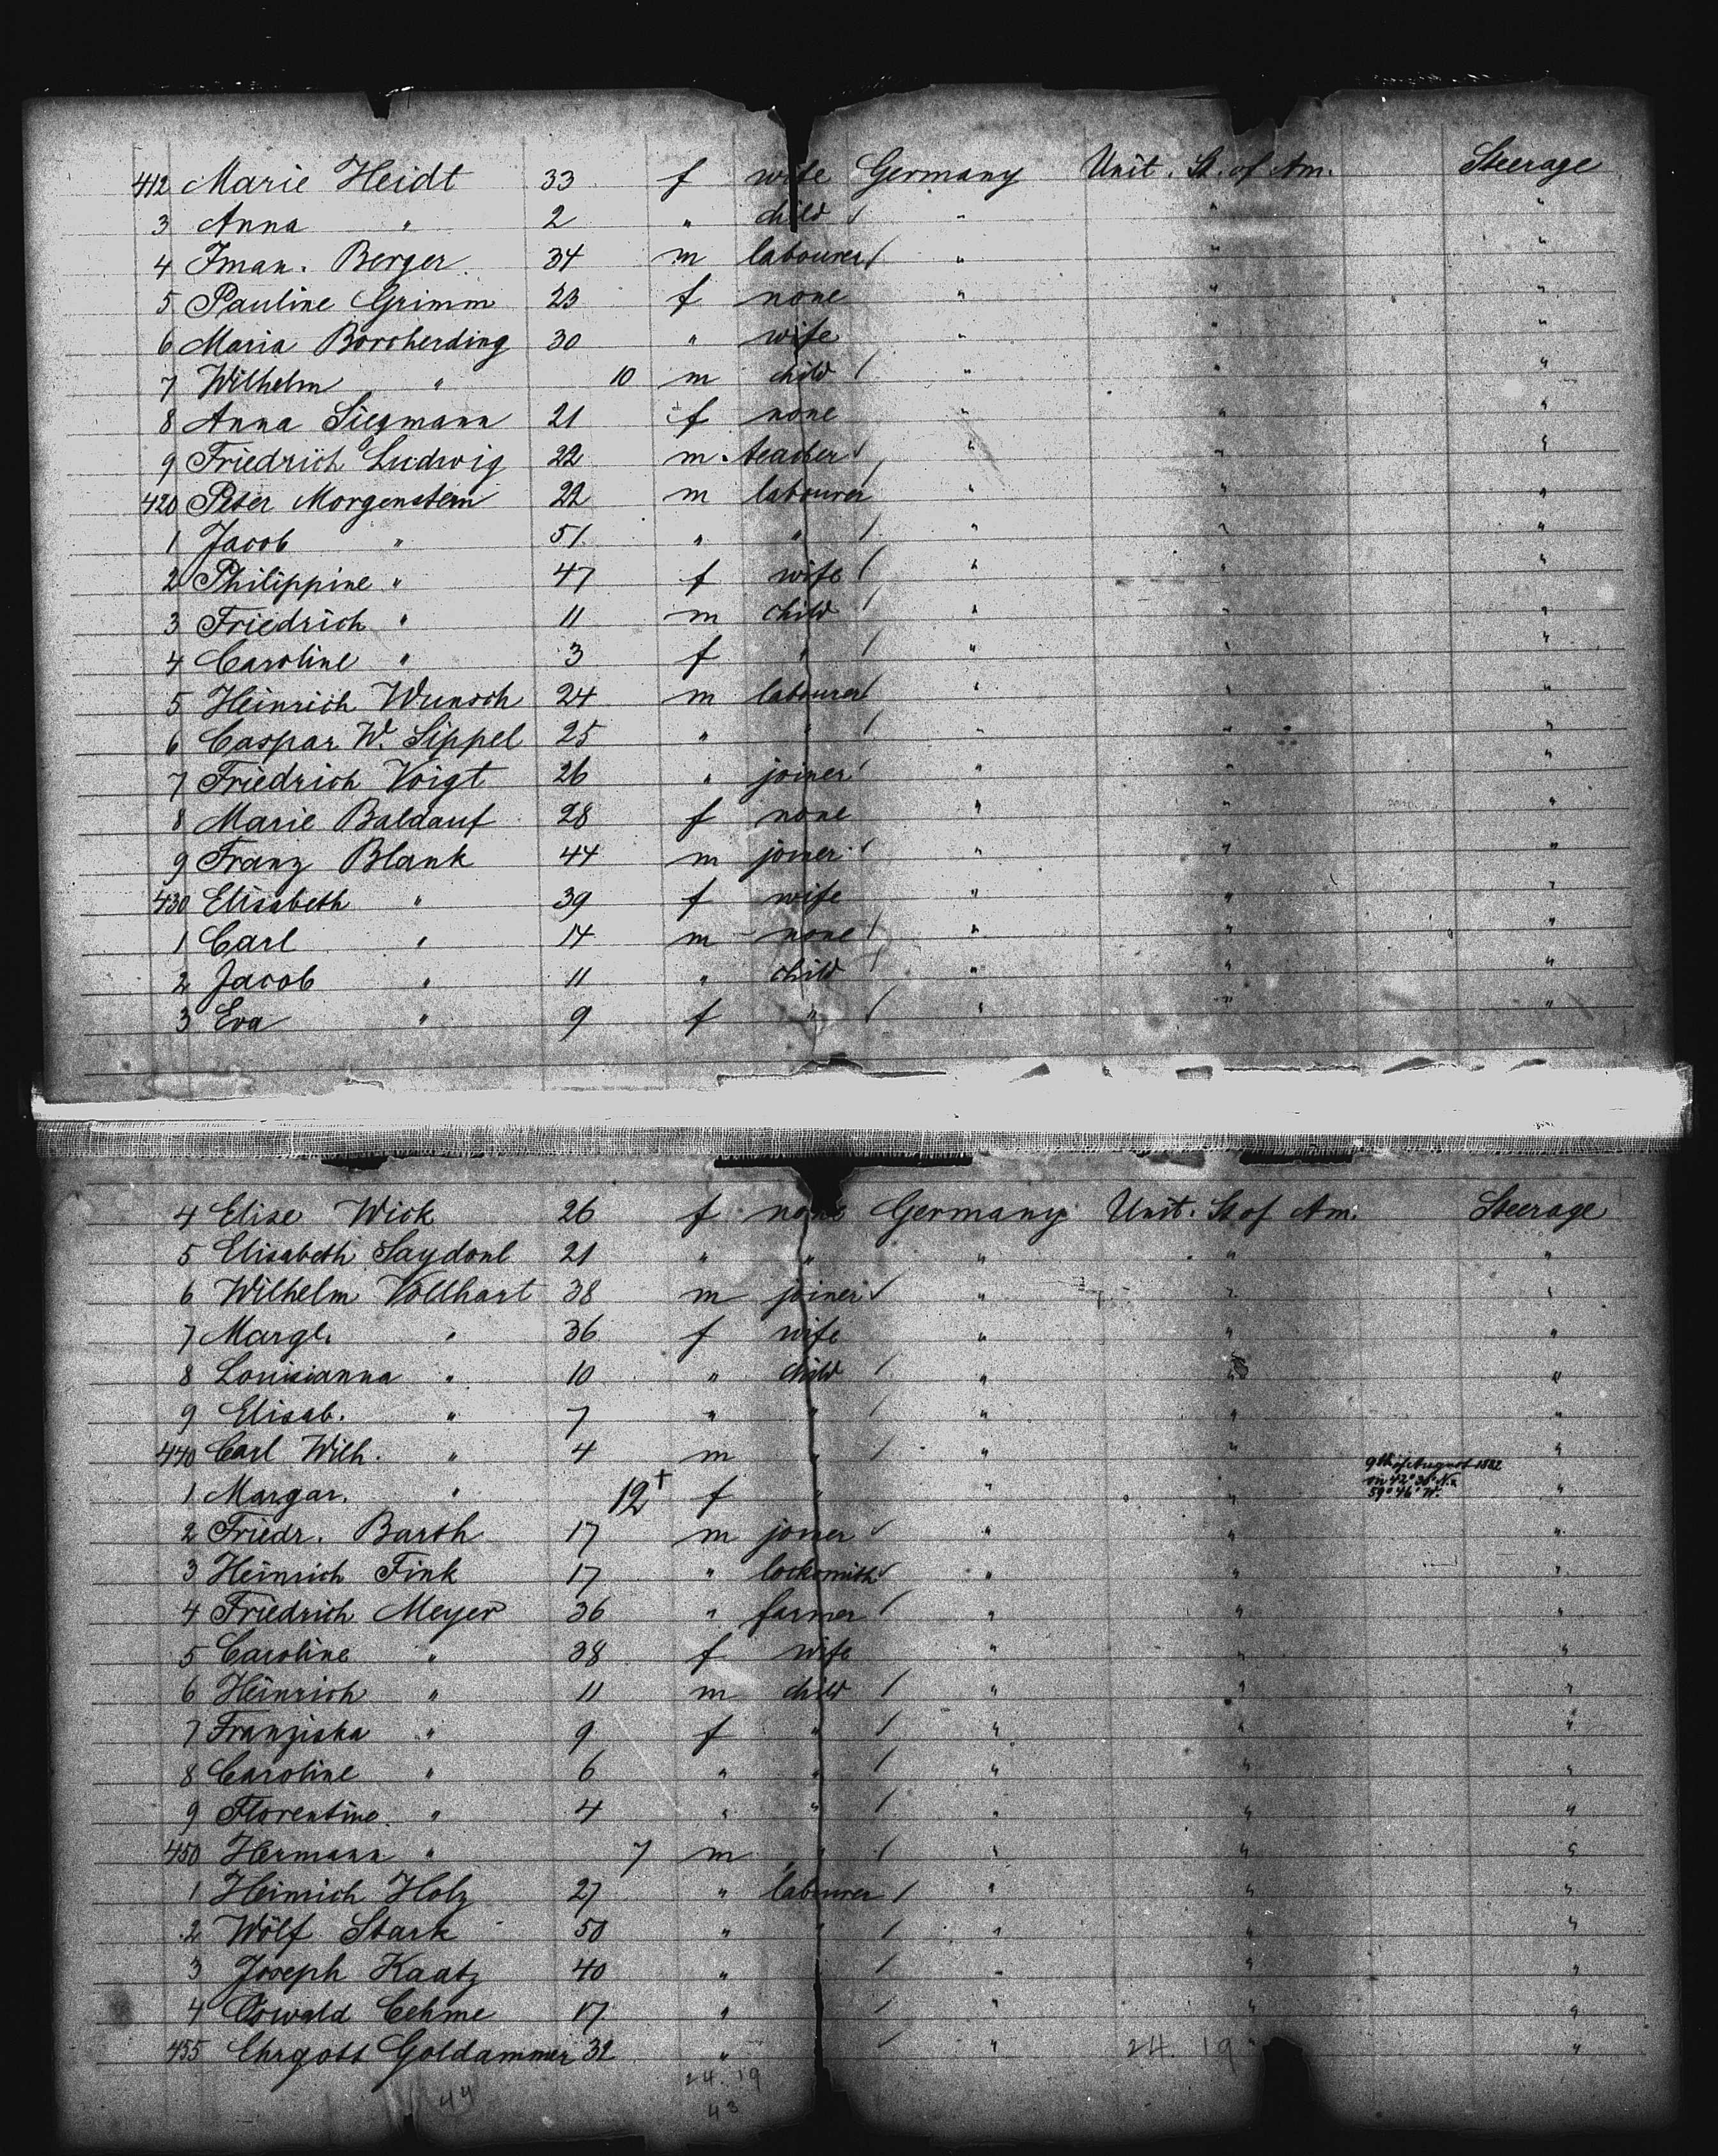 412 Marie Heidt 33 f wife Germany Unit. St. of Am. Steerage
3 Anna " 2 " child " " "
4 Iman. Berger 34 m labourer " " "
5 Pauline Grimm 23 f none " " "
6 Maria Borcherding 30 " wife " " "
7 Wilhelm " 10 m child " " "
8 Anna Siegmann 21 f none " " "
9 Friedrich Ludwig 22 m. teacher " " "
420 Peter Morgenstern 22 m labourer " " "
1 Jacob " 51 " " " " "
2 Philippine " 47 f wife " " "
3 Friedrich " 11 m child " " "
4 Caroline " 3 f " " " "
5 Heinrich Wunsch 24 m labourer " " "
6 Caspar W. Sippel 25 " " " " "
7 Friedrich Voigt 26 " joiner " " "
8 Marie Baldauf 28 f none " " "
9 Franz Blank 44 m joiner " " "
430 Elisabeth " 39 f wife " " "
1 Carl " 14 m none " " "
2 Jacob " 11 " child " " "
3 Eva " 9 f " " " "
4 Elise Wick 26 f none Germany Unit. St of Am. Steerage
5 Elisabeth 21 " " " " "
6 Wilhelm Vollhart 38 m joiner " " "
7 Margt. " 36 f wife " " "
8 Louisianna " 10 " child " " "
9 Elisab. " 7 " " " " "
440 Carl Wilh. " 4 m " " " "
1 Margar. " 12 + f " " " 9th of August 1882 in 42° 36' N. 59° 46' W. "
2 Friedr. Barth 17 m joiner " " "
3 Heinrich Fink 17 " locksmith " " "
4 Friedrich Meyer 36 " farmer " " "
5 Caroline " 38 f wife " " "
6 Heinrich " 11 m child " " "
7 Franziska " 9 f " " " "
8 Caroline " 6 " " " " "
9 Florentine " 4 " " " " "
450 Hermann " 7 m " " " "
1 Heinrich Holz 27 " labourer " " "
2 Wolf Stark 50 " " " " "
3 Joseph Kaatz 40 " " " " "
4 Oswald Oehme 17 " " " " "
455 Ehrgott Goldammer 32 " " 24. 19 " "
24. 19
44 43